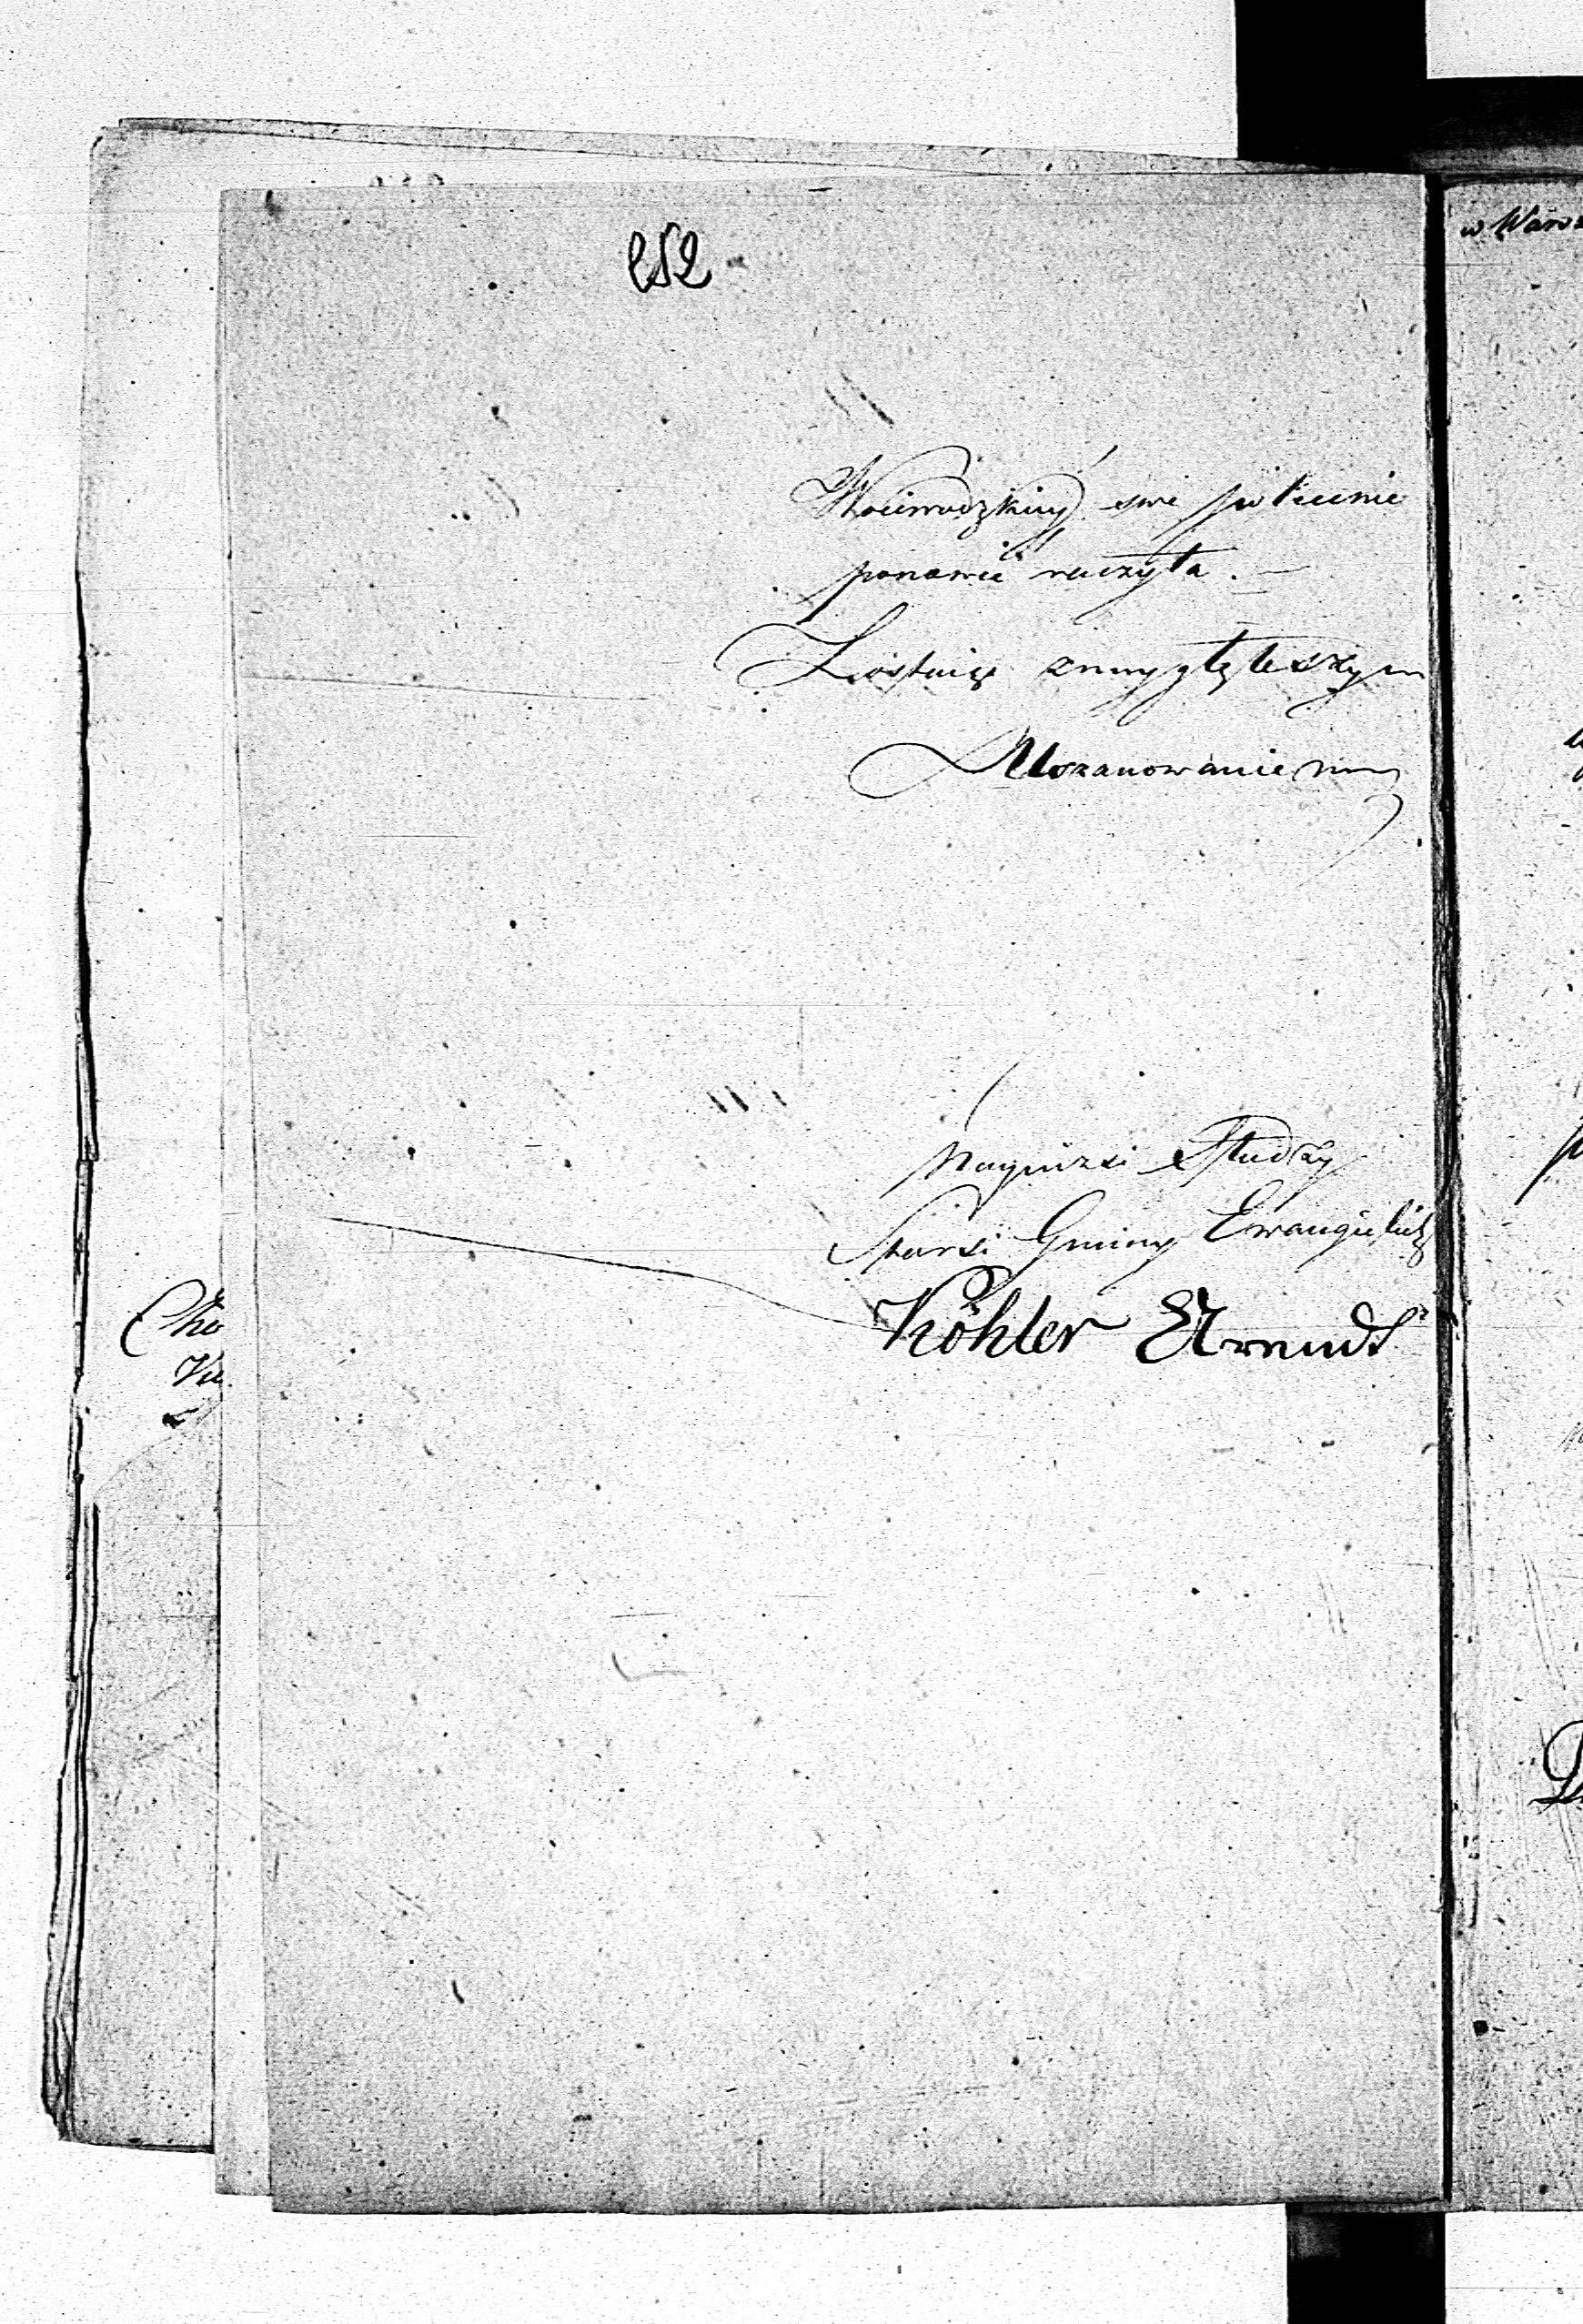 252
Woiewodzkiey swe polecenie
ponowić raczyła. —
Zostaię z naygłębszym
Uszanowaniem
Nayniżsi Słudzy
Starsi Gminy Ewangielick
Köhler Arendt
w Warsz
Cho